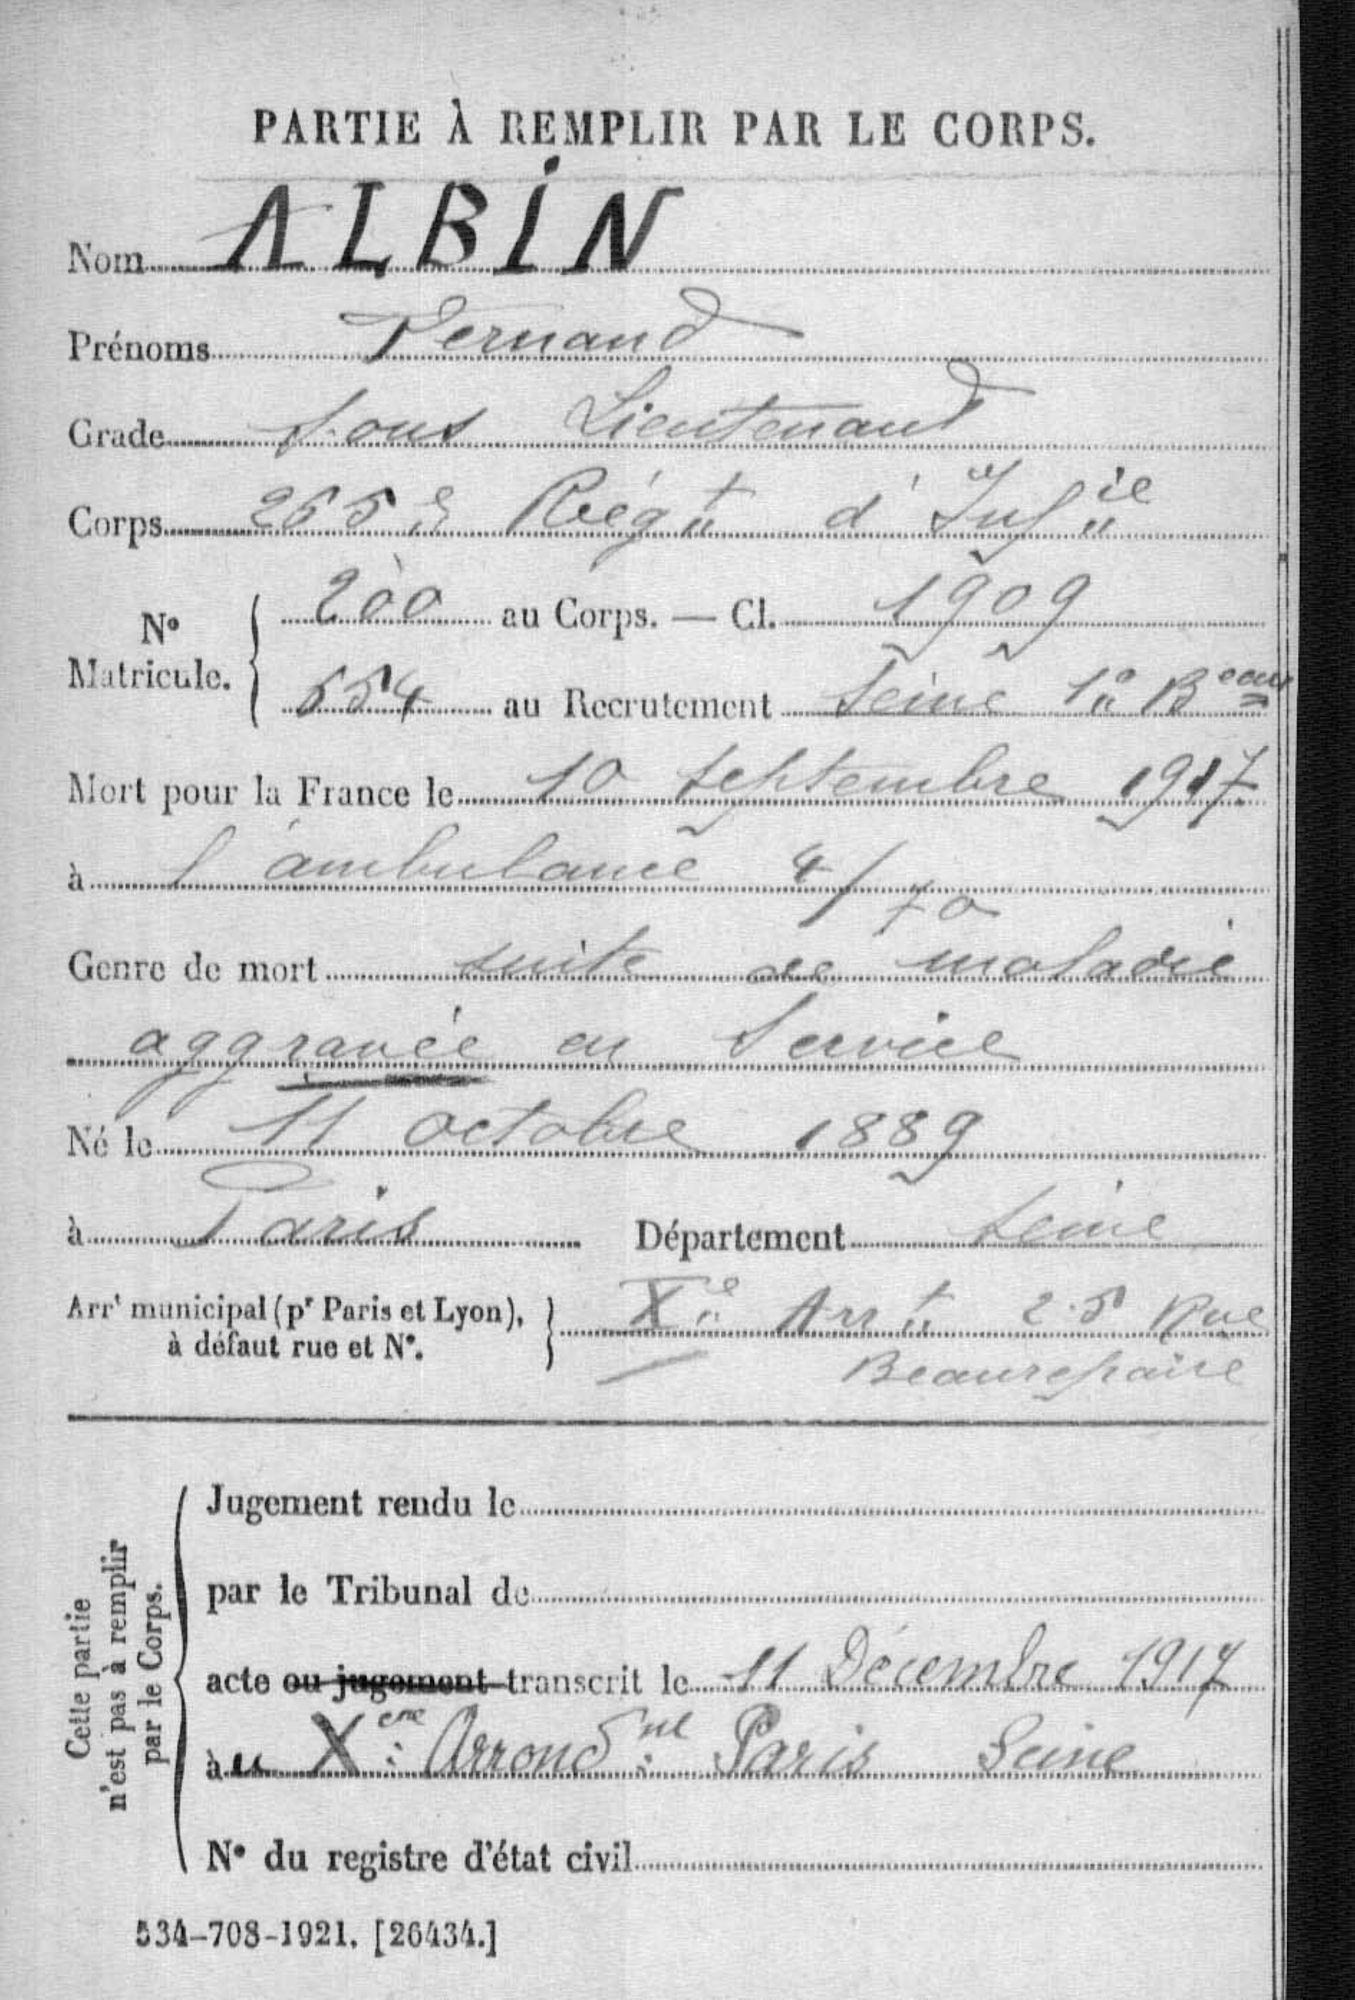 PARTIE À REMPLIR PAR LE CORPS.
Nom ALBIN
Prénoms Fernand
Grade Sous Lieutenand
Corps 265e Régt d'Infie
No Matricule. 200 au Corps. — Cl. 1909
554 au Recrutement Seine 1o Beau
Mort pour la France le 10 Septembre 1917
à l'ambulance 4/70
Genre de mort suite de maladie
aggravée en Service
Né le 11 octobre 1889
à Paris Département Seine
Arrt municipal (pr Paris et Lyon), à défaut rue et No. Xe Arrt 25 Rue
Beaurepaire
Cette partie n'est pas à remplir par le Corps.
Jugement rendu le
par le Tribunal de
acte ou jugement transcrit le 11 Décembre 1917
àu Xeme Arrondnt Paris Seine
No du registre d'état civil
534-708-1921. [26434.]